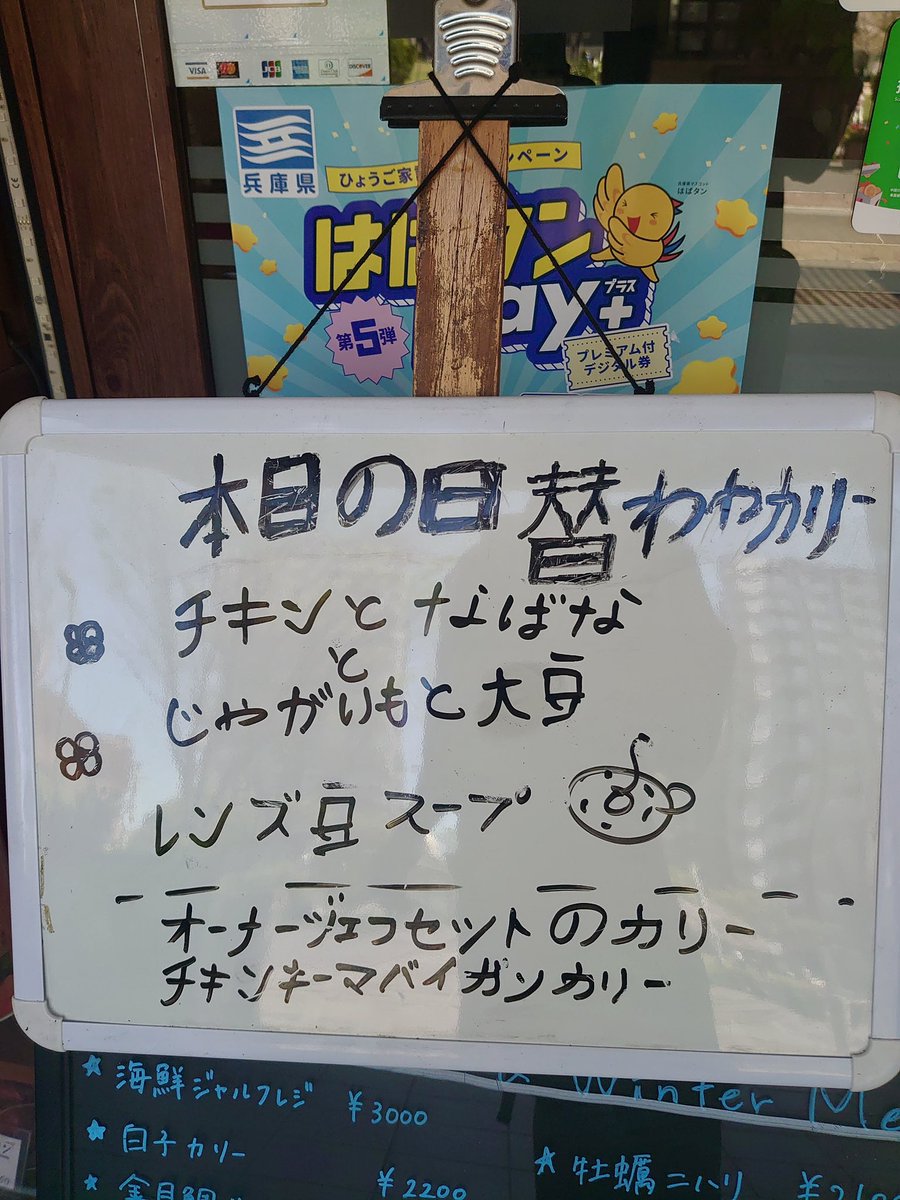 VISA
JCB
DISCOVER
兵庫県
ひょうご家
ンペーン
兵庫県マスコット
はばタン
はばタン
ay+
プラス
第5弾
プレミアム付
デジタル券
本日の日替わりカリー
チキンとなばな
と
じゃがいもと大豆
レンズ豆スープ
オーナージェフセットのカリー
チキンキーマバイガンカリー
★海鮮ジャルフレジ ¥3000
Winter Me
★白子カリー
★金目鯛 ¥2200
★牡蠣ニハリ